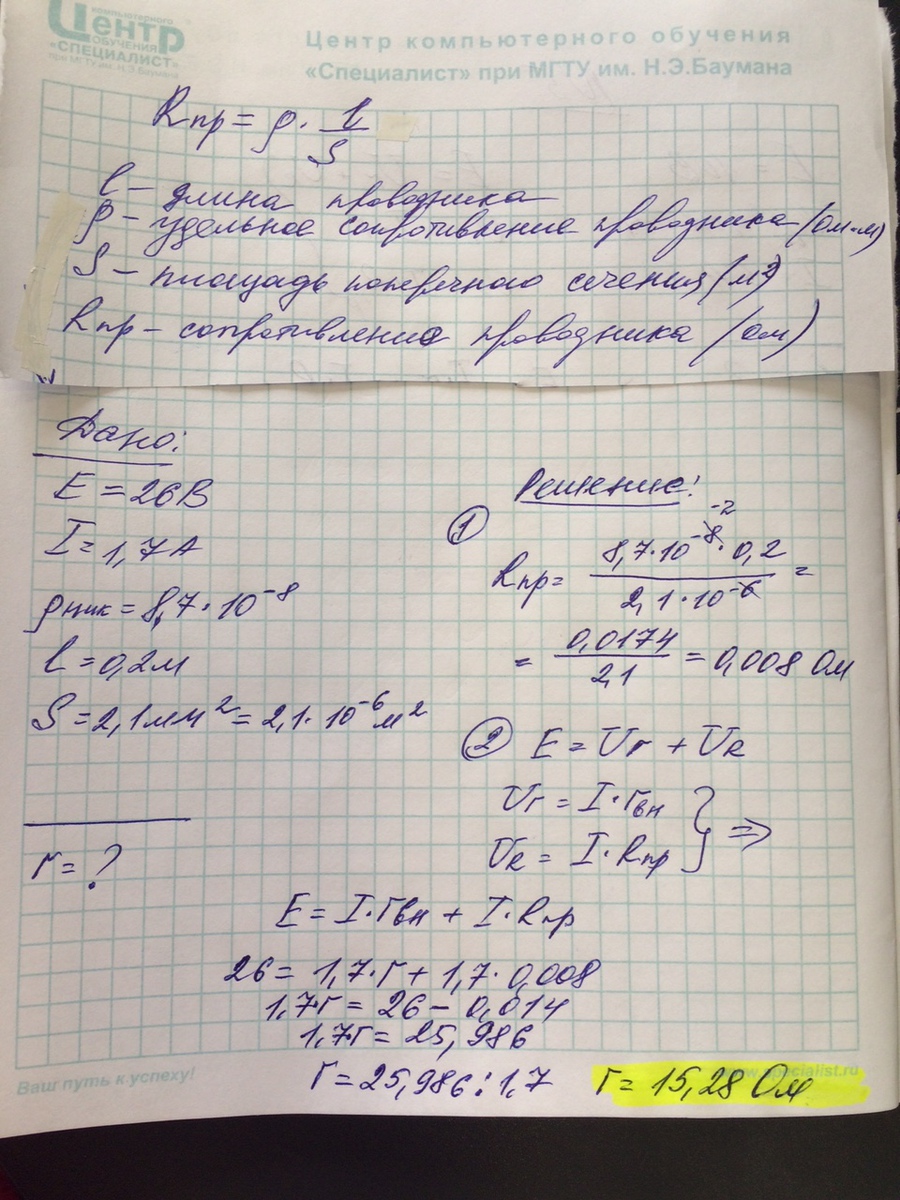 компьютерного
Центр
ОБУЧЕНИЯ
«СПЕЦИАЛИСТ»
при МГТУ им. Н.Э. Баумана
Центр компьютерного обучения
«Специалист» при МГТУ им. Н.Э.Баумана
Rпр = ρ · l/S
l – длина проводника
ρ – удельное сопротивление проводника (Ом·м)
S – площадь поперечного сечения (м²)
Rпр – сопротивление проводника (Ом)
Дано:
E = 26В
I = 1,7А
ρник = 8,7·10⁻⁸
l = 0,2м
S = 2,1мм² = 2,1·10⁻⁶м²
r = ?
Решение:
① Rпр = 8,7·10⁻⁸ ⁻²·0,2 / 2,1·10⁻⁶ =
= 0,0174/2,1 = 0,008 Ом
② E = Ur + UR
Ur = I·rвн
UR = I·Rпр } ⇒
E = I·rвн + I·Rпр
26 = 1,7·r + 1,7·0,008
1,7·r = 26 – 0,014
1,7r = 25,986
r = 25,986 : 1,7 r = 15,28 Ом
Ваш путь к успеху!
www.specialist.ru